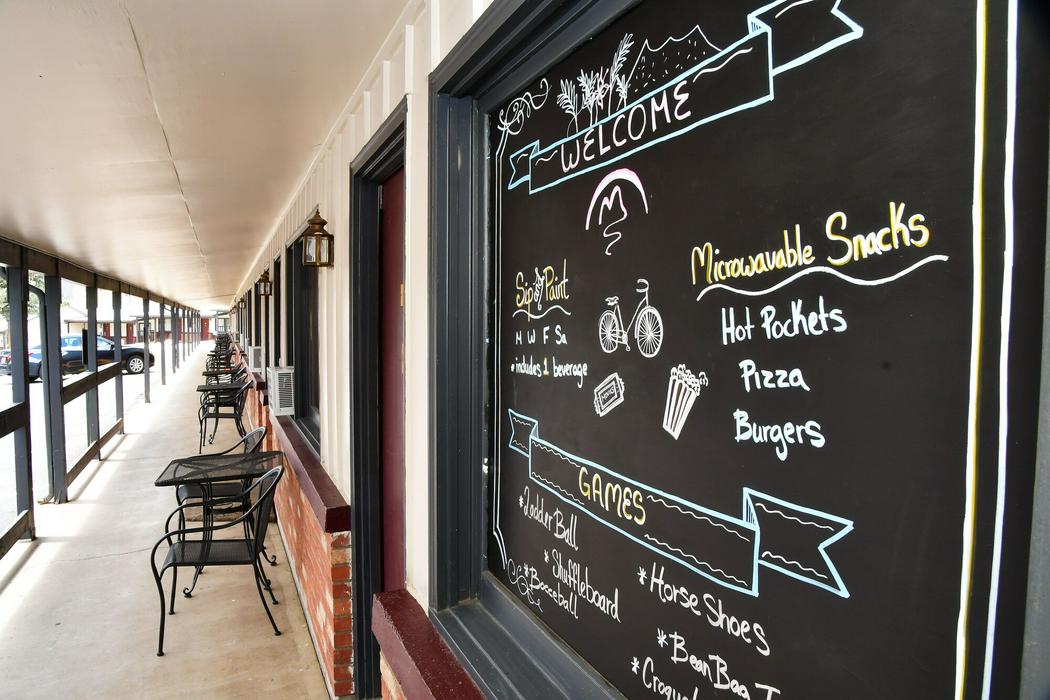 WELCOME
M
Sip & Paint
M W F Sa
* includes 1 beverage
Microwavable Snacks
Hot Pockets
Pizza
Burgers
GAMES
* Ladder Ball
* Shuffleboard
* Bocceball
* Horse Shoes
* Bean Bag T
* Croquet